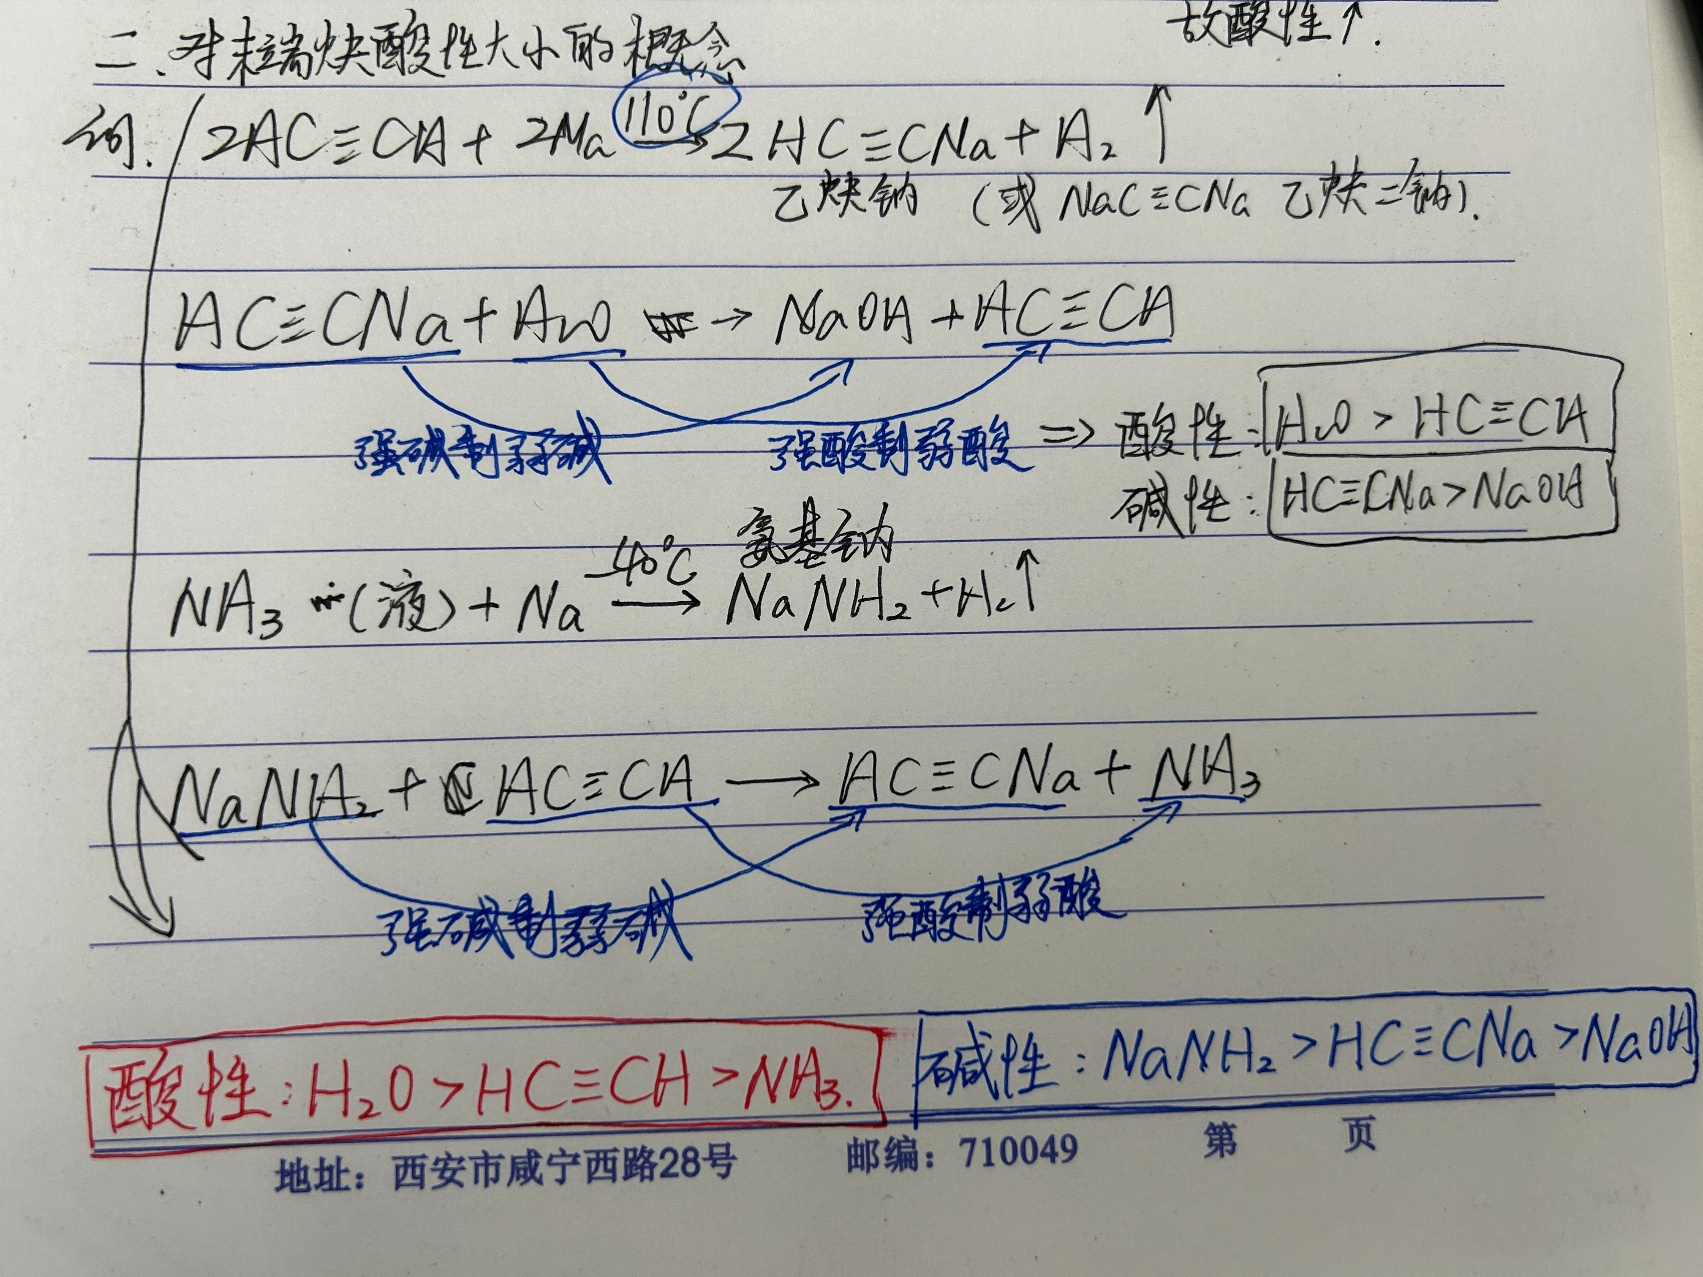 故酸性↑.
二、对末端炔酸性大小的概念
例. 2HC≡CH + 2Na 110℃→ 2HC≡CNa + H₂↑
乙炔钠 (或 NaC≡CNa 乙炔二钠).
HC≡CNa + H₂O → NaOH + HC≡CH
强碱制弱碱 强酸制弱酸 ⇒ 酸性: H₂O > HC≡CH
碱性: HC≡CNa > NaOH
-40℃ 氨基钠
NH₃ (液) + Na → NaNH₂ + H₂↑
NaNH₂ + HC≡CH → HC≡CNa + NH₃
强碱制弱碱 强酸制弱酸
酸性: H₂O > HC≡CH > NH₃. 碱性: NaNH₂ > HC≡CNa > NaOH
地址：西安市咸宁西路28号 邮编：710049 第 页